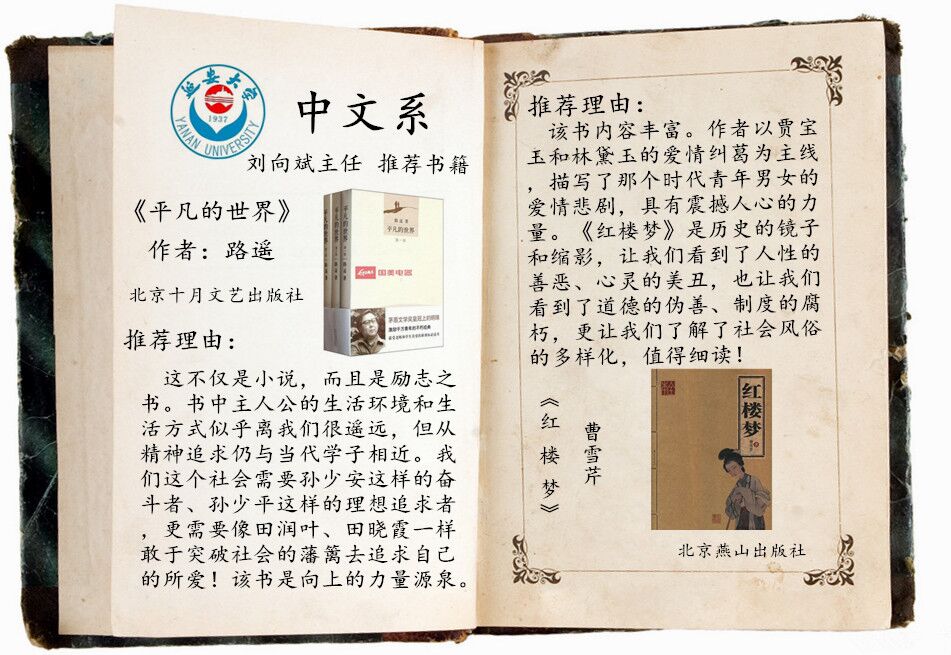 延安大学
1937
YANAN UNIVERSITY
中文系
刘向斌主任 推荐书籍
《平凡的世界》
作者：路遥
北京十月文艺出版社
平凡的世界
平凡的世界
平凡的世界
路遥 著
平凡的世界
国美电器
茅盾文学奖皇冠上的明珠
激励千万青年的不朽经典
推荐理由：
这不仅是小说，而且是励志之
书。书中主人公的生活环境和生
活方式似乎离我们很遥远，但从
精神追求仍与当代学子相近。我
们这个社会需要孙少安这样的奋
斗者、孙少平这样的理想追求者
，更需要像田润叶、田晓霞一样
敢于突破社会的藩篱去追求自己
的所爱！该书是向上的力量源泉。
推荐理由：
该书内容丰富。作者以贾宝
玉和林黛玉的爱情纠葛为主线
，描写了那个时代青年男女的
爱情悲剧，具有震撼人心的力
量。《红楼梦》是历史的镜子
和缩影，让我们看到了人性的
善恶、心灵的美丑，也让我们
看到了道德的伪善、制度的腐
朽，更让我们了解了社会风俗
的多样化，值得细读！
《红楼梦》
曹雪芹
红楼梦
北京燕山出版社